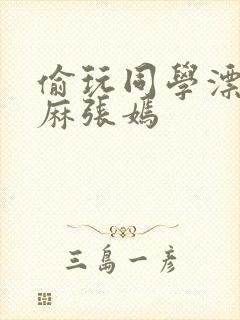 偷玩同學漂
麻張嫣
三島一彥